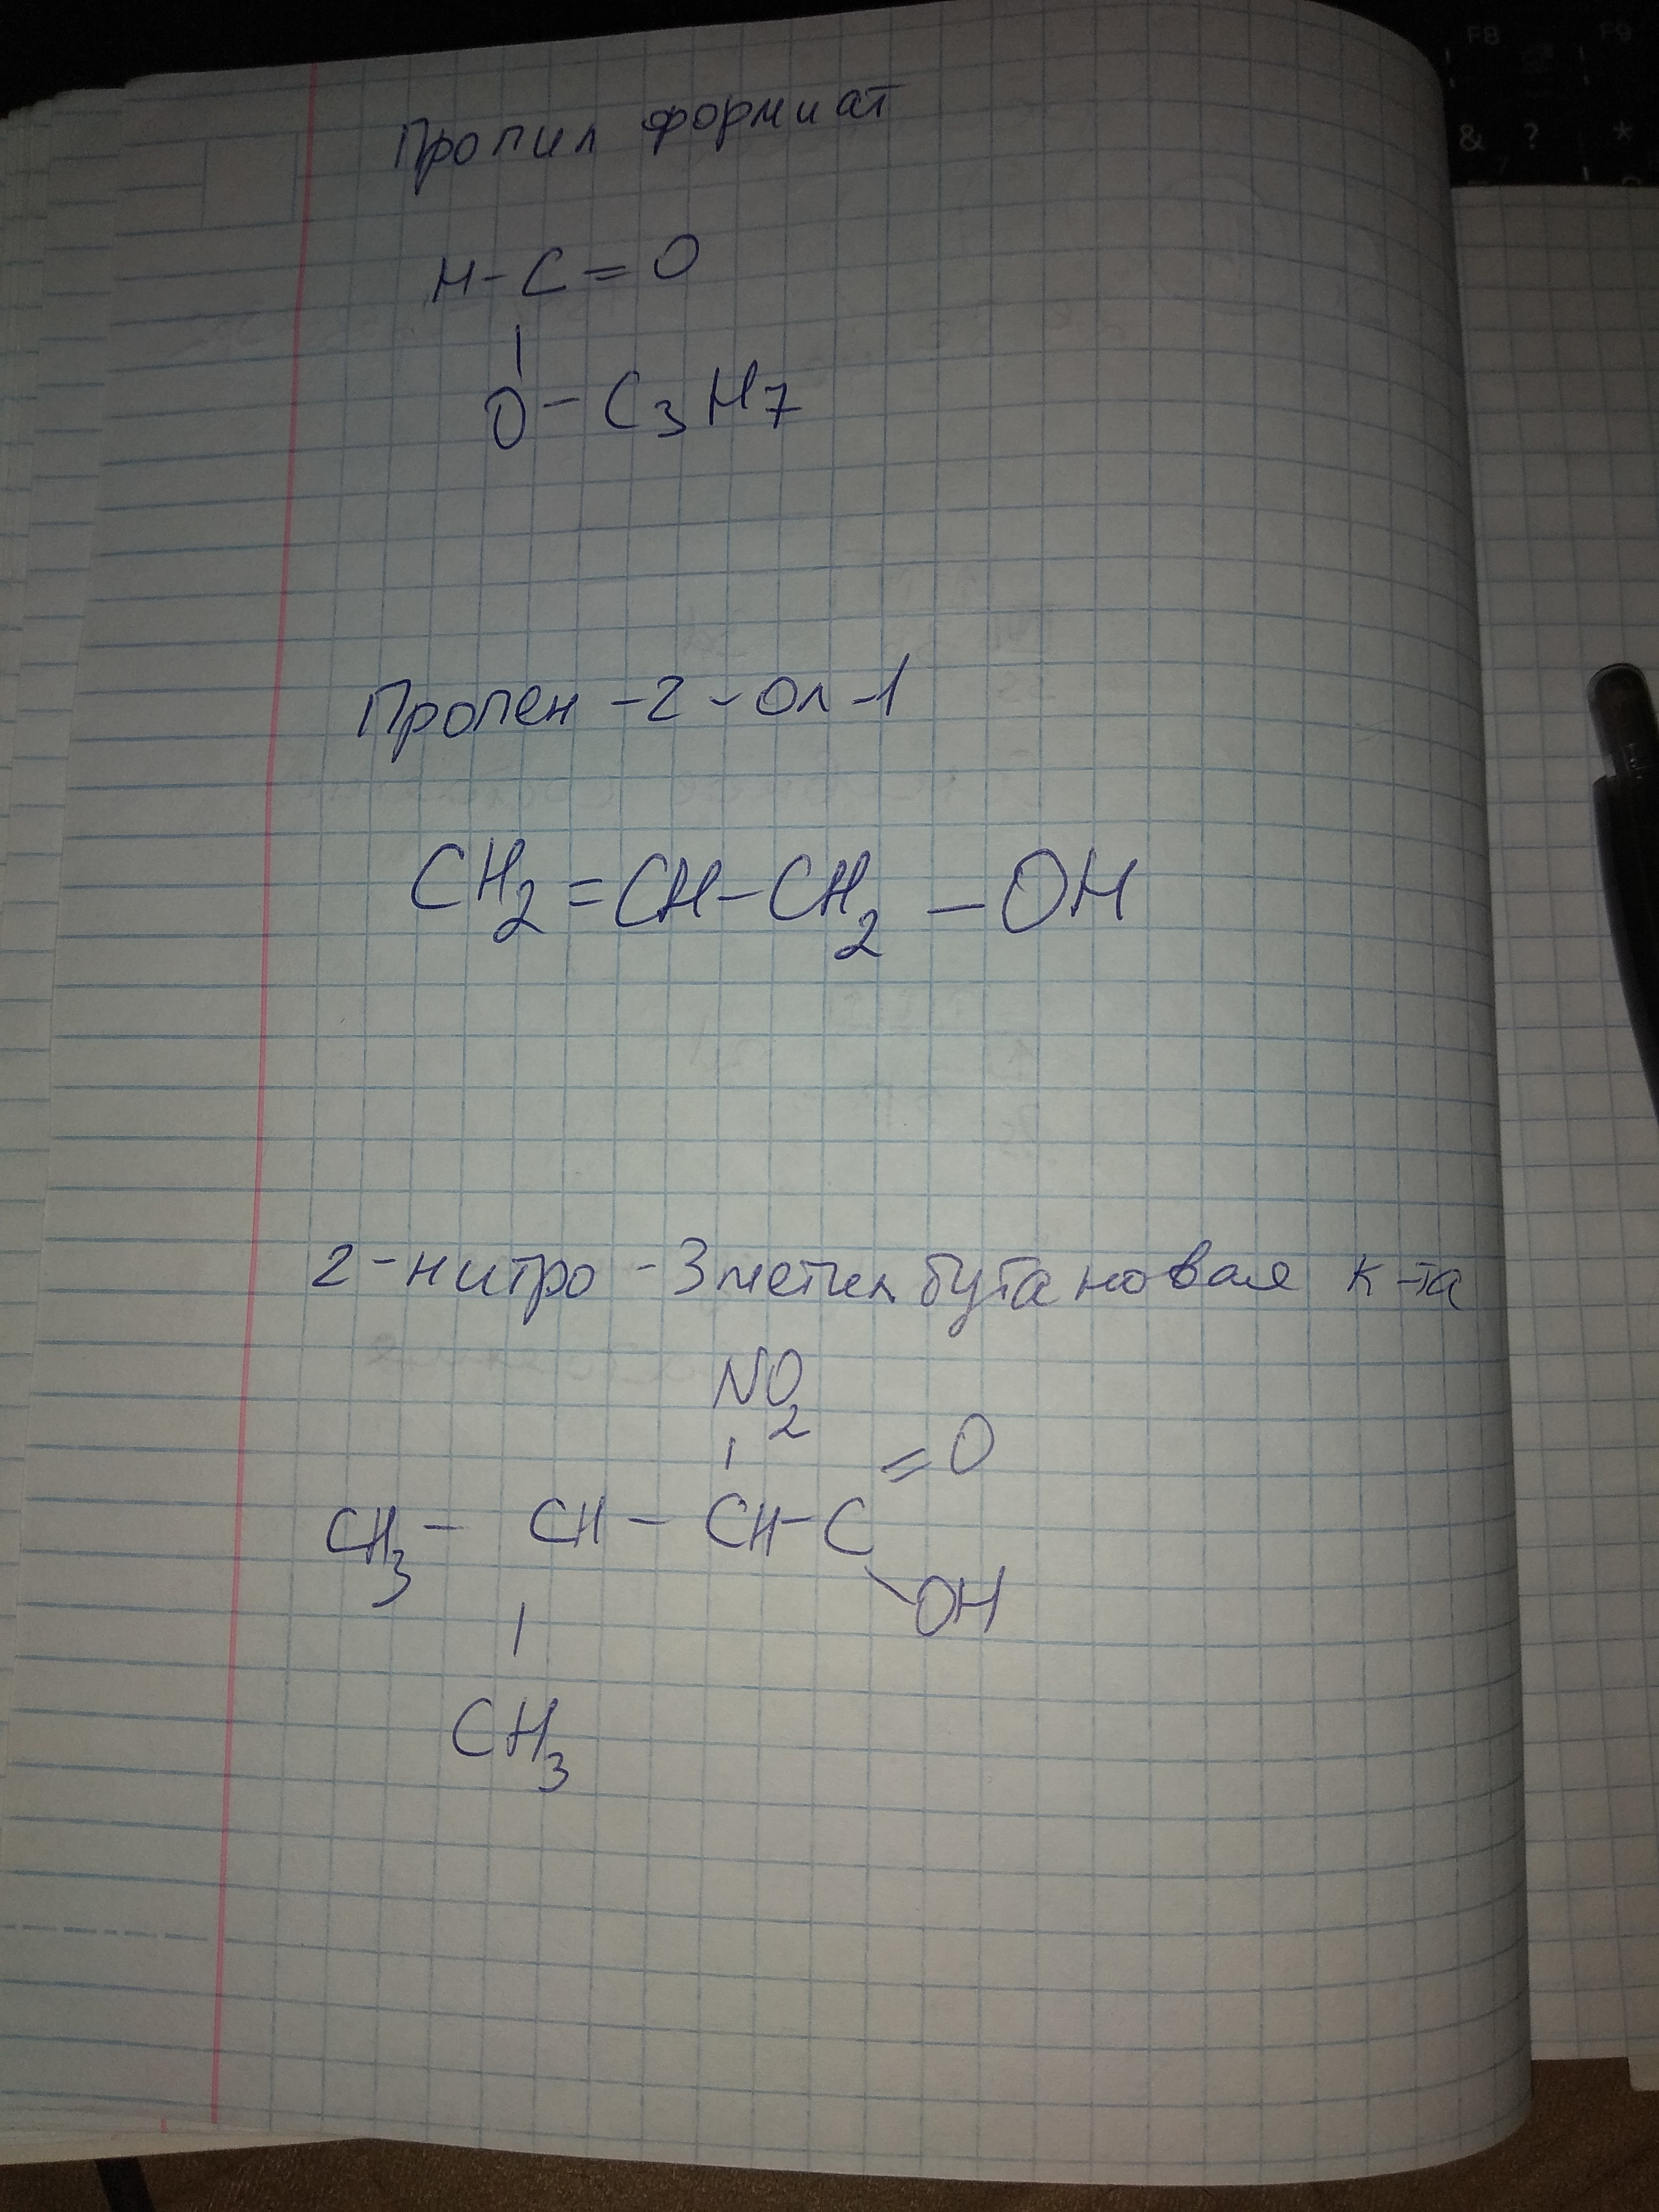 Пропил формиат
H-C=O
|
O-C3H7
Пропен-2-ол-1
CH2=CH-CH2-OH
2-нитро-3метилбутановая к-та
NO2
| =O
CH3-CH-CH-C
| \OH
CH3
F8 F9
& ? *
7